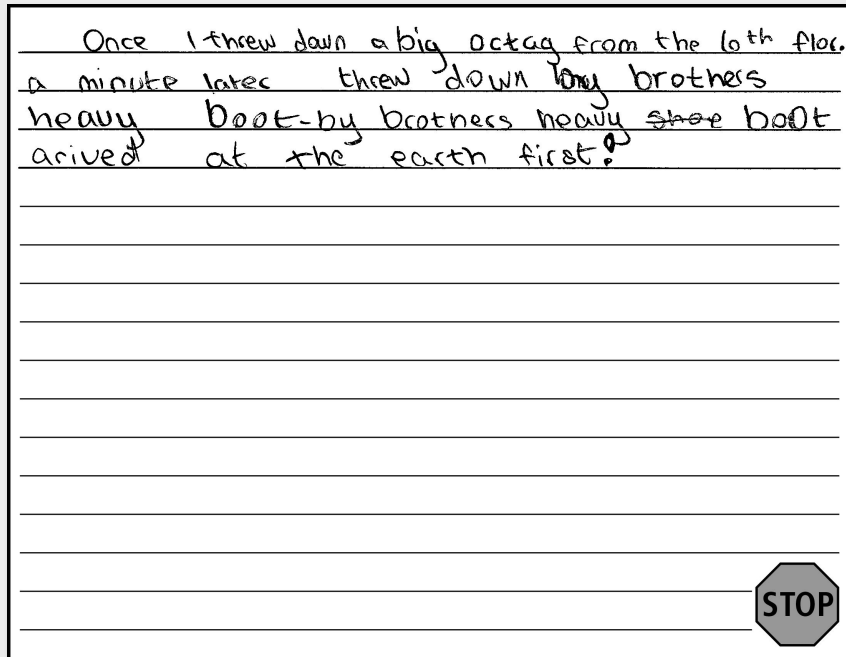 Once I threw down a big octag from the 10th floc.
a minute later threw down my brothers
heavy boot-by brothers heavy shoe boot
arived at the earth first!
STOP